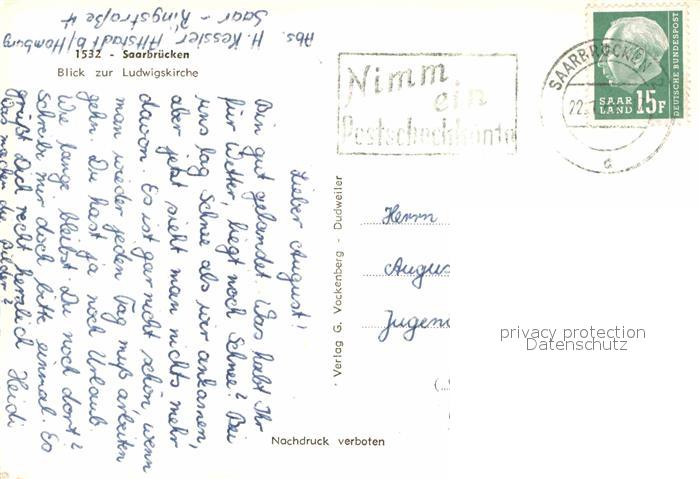 Abs. H. Kessler, Altstadt b/Homburg
Saar - Ringstraße 4
1532 - Saarbrücken
Blick zur Ludwigskirche
Lieber August!
Bin gut gelandet. Was habt Ihr
für Wetter, liegt noch Schnee? Bei
uns lag Schnee als wir ankamen,
aber jetzt sieht man nichts mehr
davon. Es ist gar nicht schön wenn
man wieder jeden Tag muß arbeiten
gehn. Du hast ja noch Urlaub.
Wie lange bleibst Du noch dort?
Schreib mir doch bitte einmal. Es
grüßt Dich recht herzlich Heidi
Was machen die Bilder?
Verlag G. Vockenberg - Dudweiler
Nachdruck verboten
Nimm
ein
Postscheckkonto
SAARBRÜCKEN
22.
a
SAAR
LAND 15F
DEUTSCHE BUNDESPOST
Herrn
Augus
Jugen
(..
privacy protection
Datenschutz